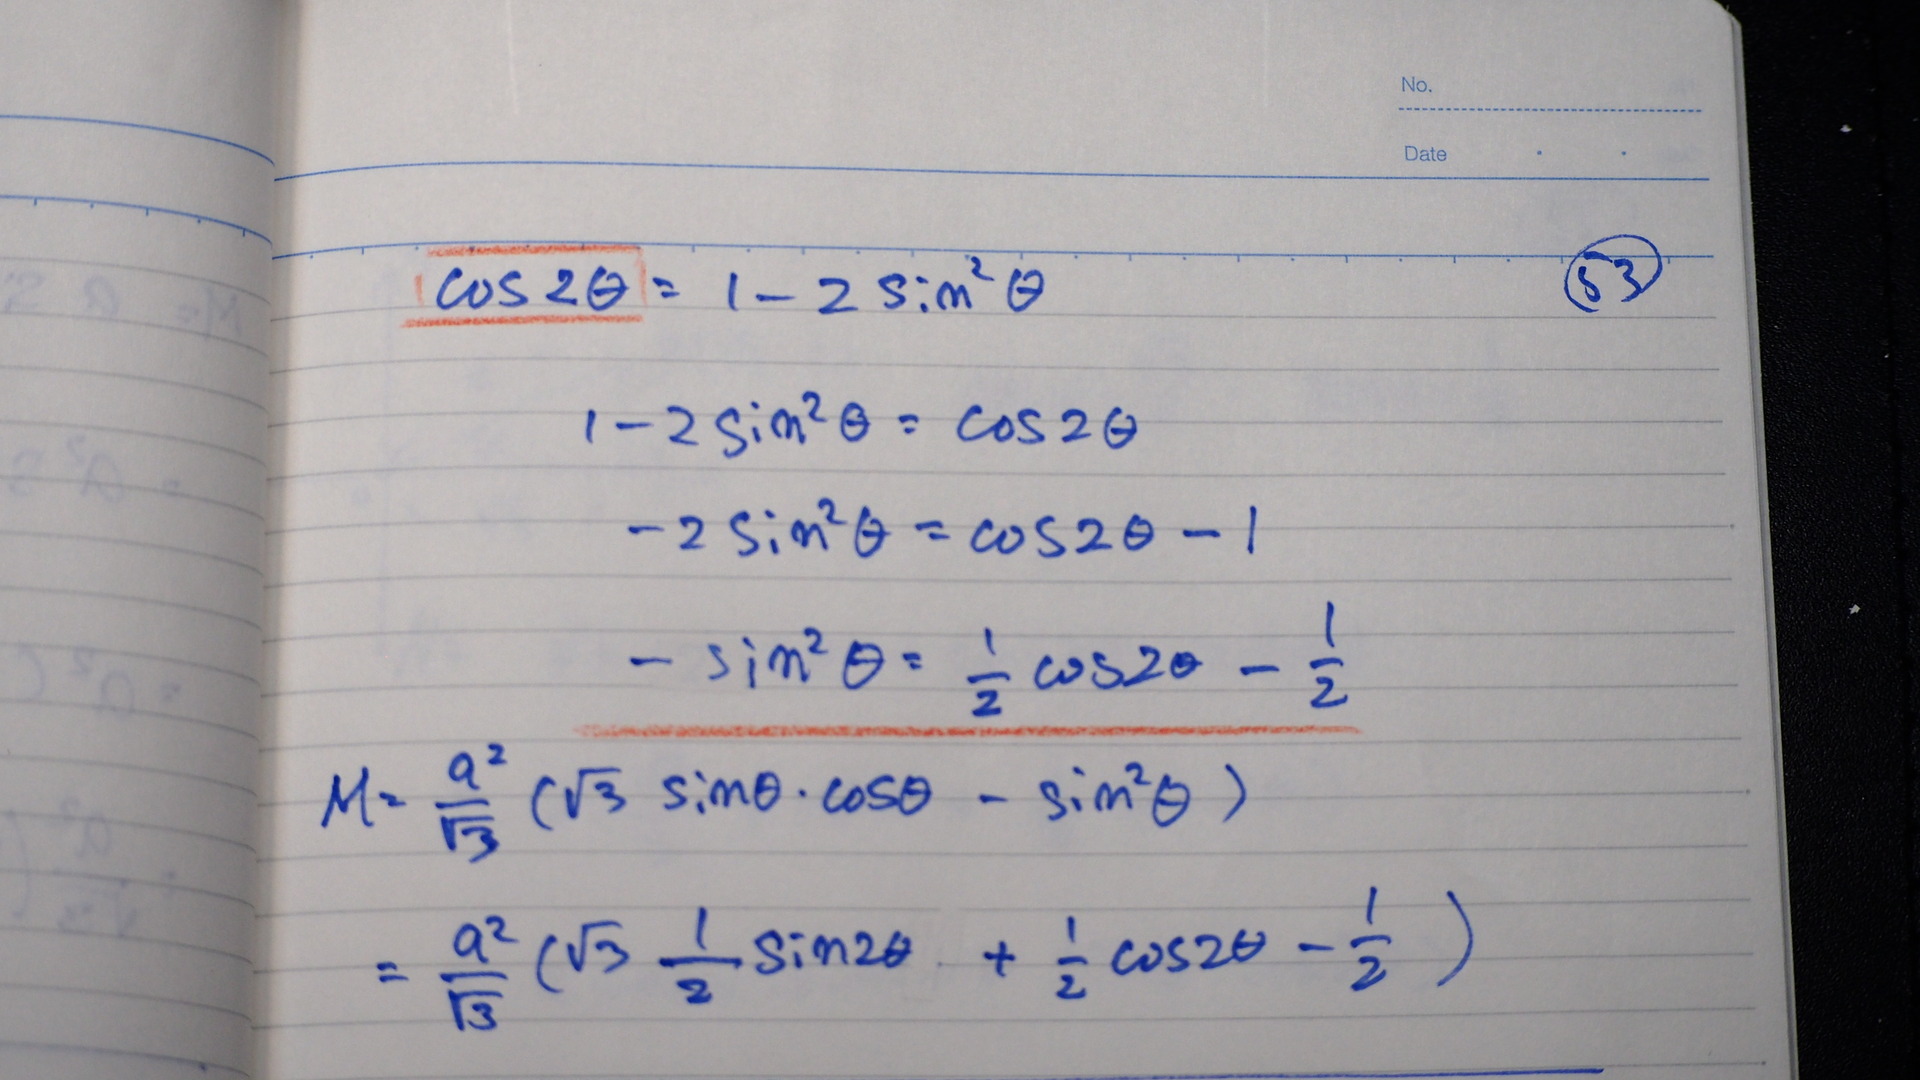 No.
Date
53
cos2θ = 1 - 2 sin²θ
1 - 2 sin²θ = cos2θ
- 2 sin²θ = cos2θ - 1
- sin²θ = 1/2 cos2θ - 1/2
M = a²/√3 (√3 sinθ·cosθ - sin²θ)
= a²/√3 (√3 1/2 sin2θ + 1/2 cos2θ - 1/2)